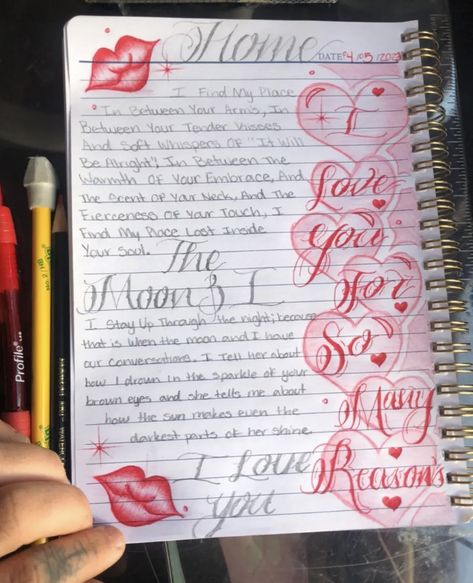 Home
DATE: 4/05/202
I Find My Place
In Between Your Arms, In
Between Your Tender Kisses
And Soft Whispers Of "It Will
Be Alright", In Between The
Warmth Of Your Embrace, And
The Scent Of Your Neck, And The
Fierceness Of Your Touch, I
Find My Place Lost Inside
Your Soul.
The
Moon & I
I Stay Up Through the night; because
that is when the moon and I have
our conversations. I Tell her about
how I drown in the sparkle of your
brown eyes and she tells me about
how the sun makes even the
darkest parts of her shine
I Love
You
I
Love
You
For
So
Many
Reasons
Profile
No 2/HB